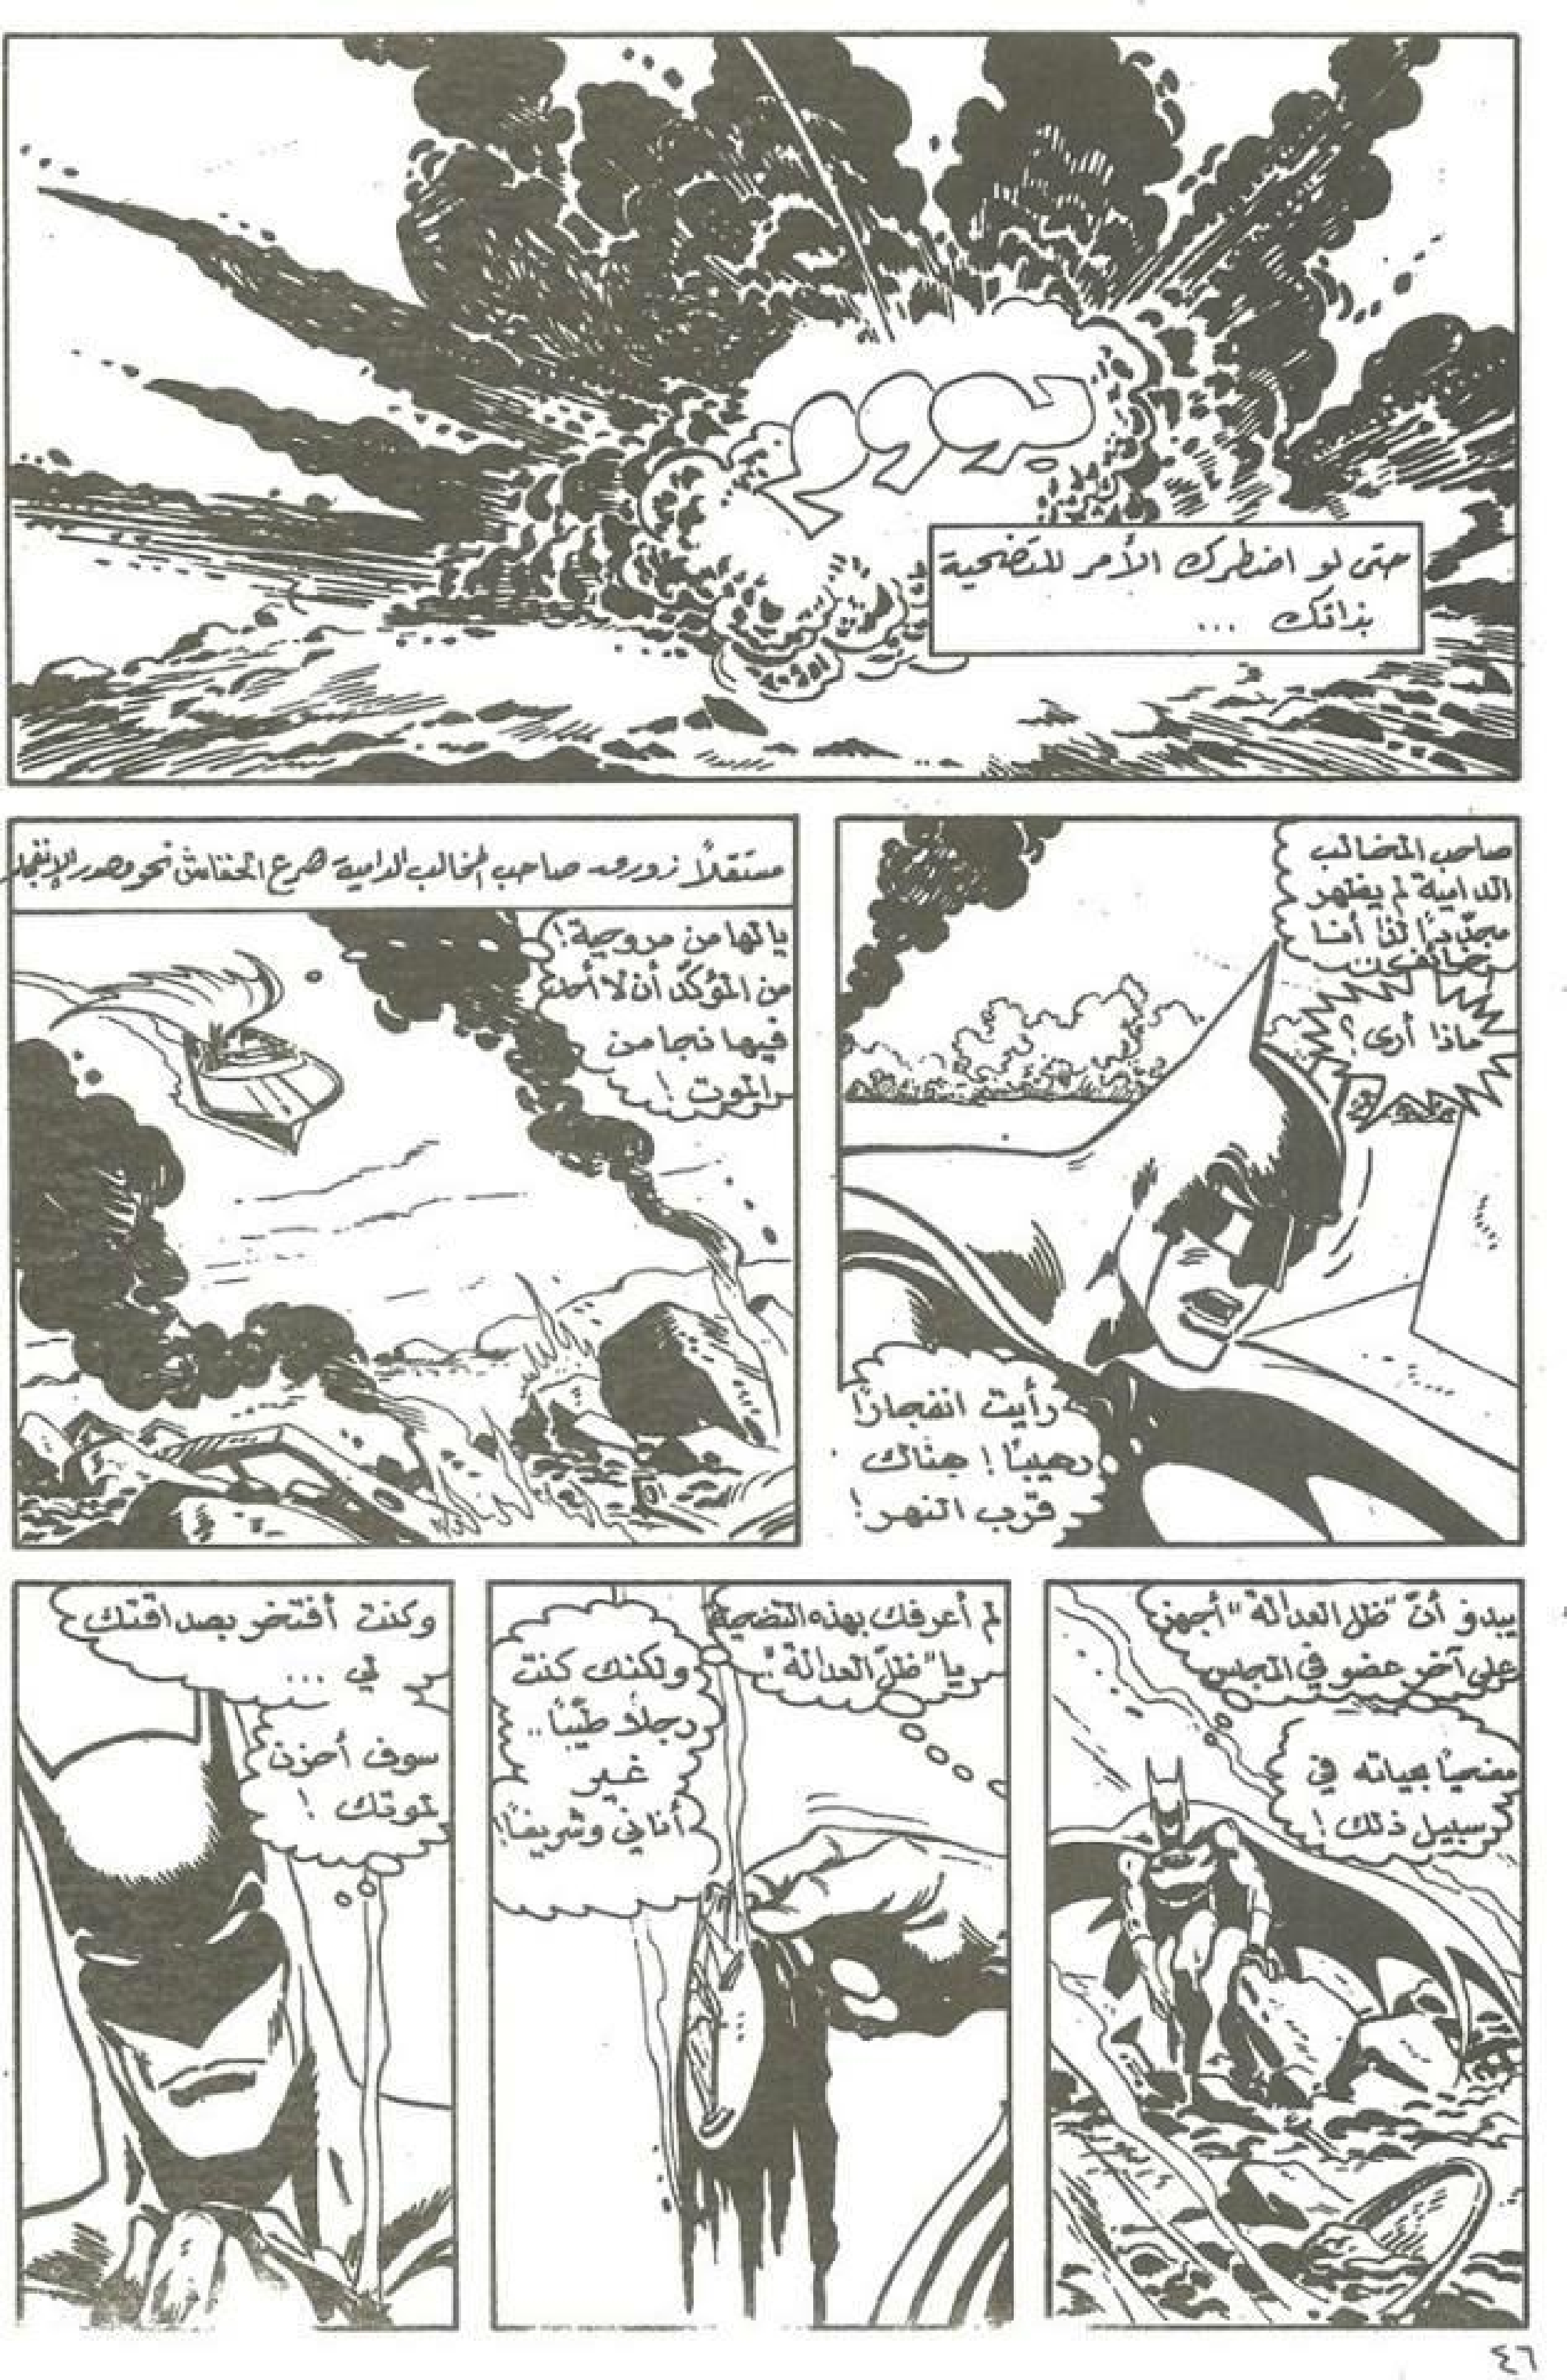 بوووم
حتى لو اضطرك الأمر للتضحية
بذاتك ...
صاحب المخالب
الدامية لم يظهر
مجدّدًا لذا أنا
خائف من
ماذا أرى ؟
رأيت انفجارًا
رهيبًا ! هناك
قرب النهر !
مستقلاً زورق صاحب المخالب الدامية هرع الخفاش نحو مصدر الإنفجار
يالها من مروحية !
من المؤكّد أن لا أحد
فيها نجا من
الموت !
يبدو أنّ "ظل العدالة" أجهز
على آخر عضو في المجلس
مضحيًا بحياته في
سبيل ذلك !
لم أعرفك بهذه التضحية
يا "ظلّ العدالة" !
ولكنك كنت
رجلاً طيّبًا..
غير
أناني وشريفًا !
وكنت أفتخر بصداقتك
لي ...
سوف أحزن
لموتك !
٤٦